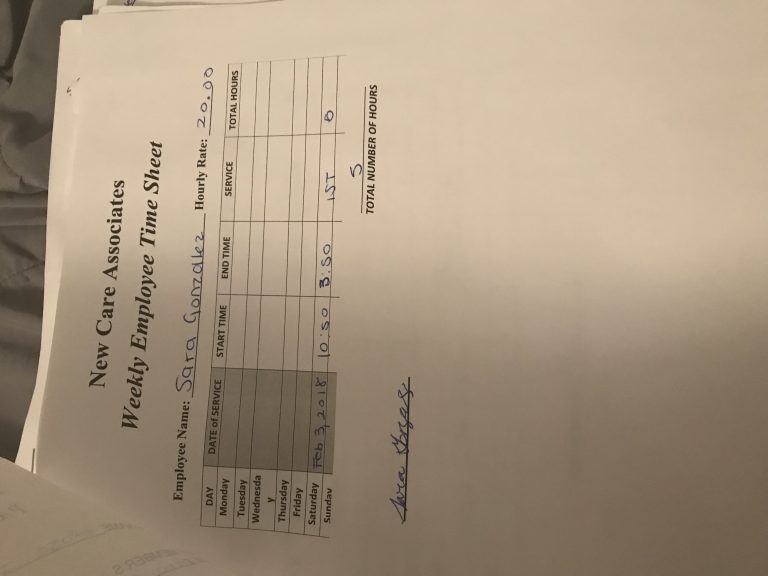 New Care Associates
Weekly Employee Time Sheet
Employee Name: Sara Gonzalez Hourly Rate: 20.00
DAY DATE of SERVICE START TIME END TIME SERVICE TOTAL HOURS
Monday
Tuesday
Wednesda
y
Thursday
Friday
Saturday Feb 3, 2018 10:50 3:50 IST
Sunday
5
TOTAL NUMBER OF HOURS
Sara